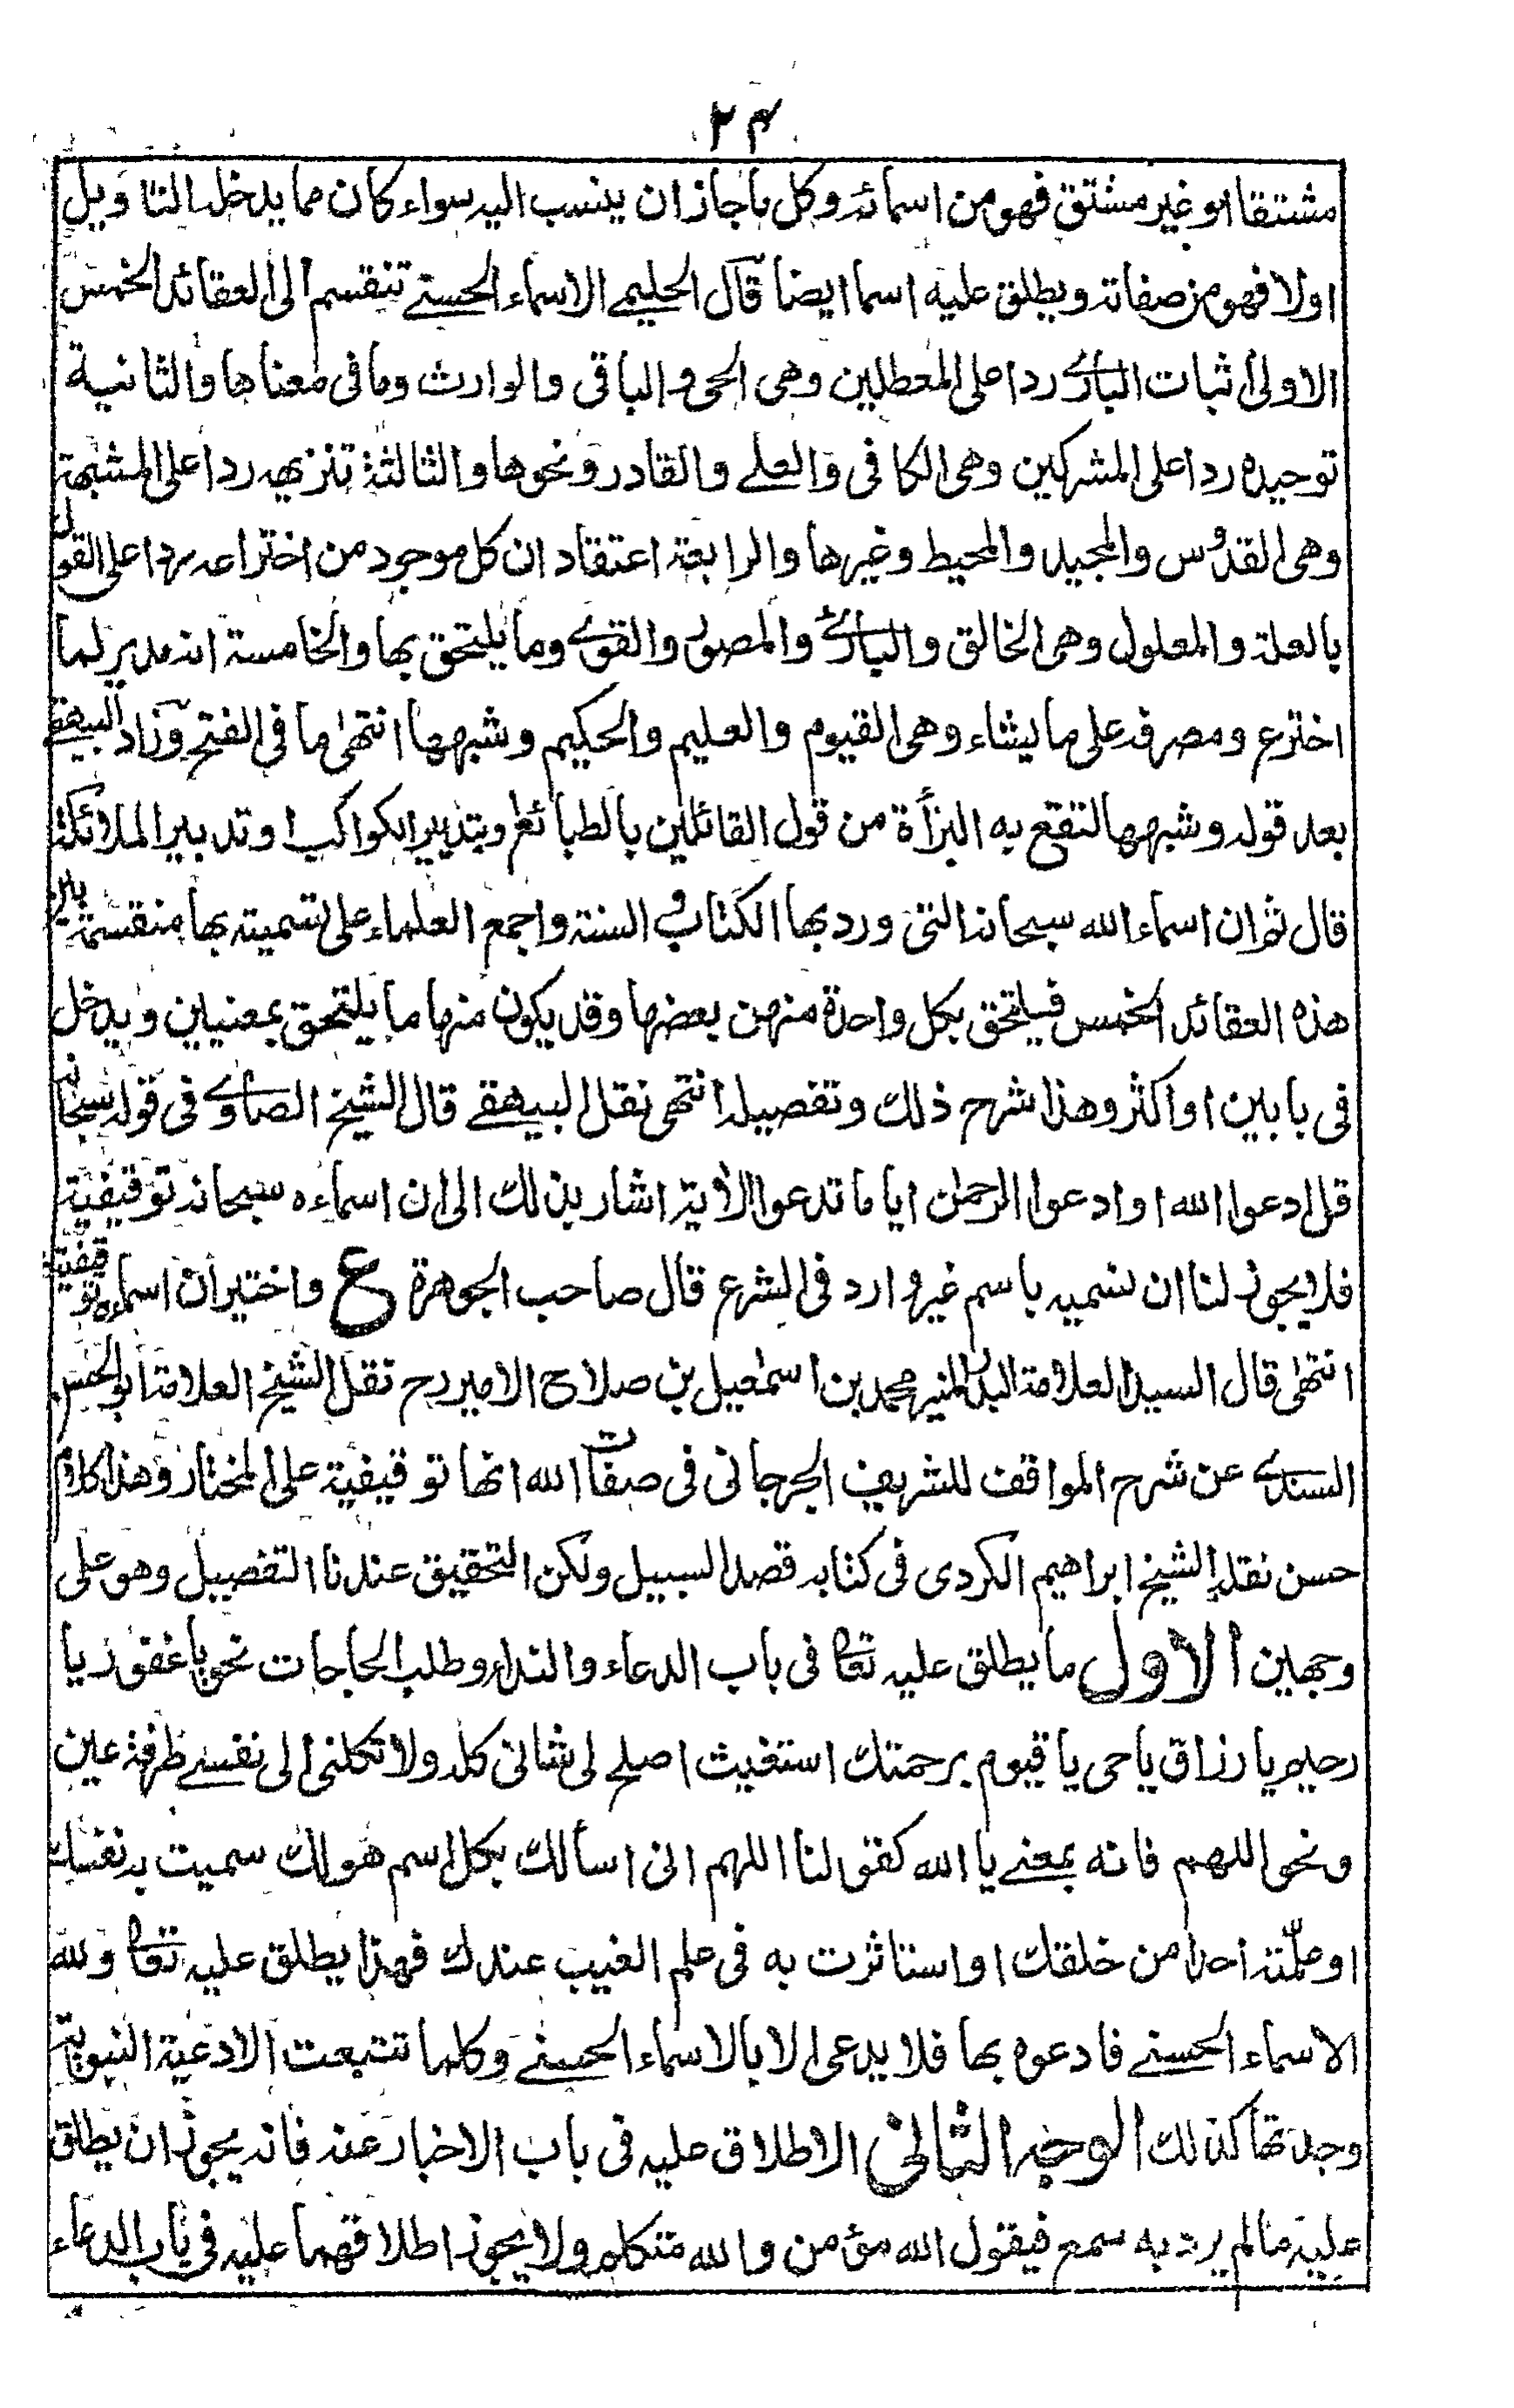 ٢٤
مشتقا او غير مشتق فهو من اسمائه وكل ما جاز ان ينسب اليه سواء كان مما يدخله التاويل
اولا فهو من صفاته ويطلق عليه اسما ايضا قال الحليمى الاسماء الحسنے تنقسم الى العقائد الخمس
الاولى اثبات البارى ردا على المعطلين وهى الحى والباقى والوارث وما فى معناها والثانية
توحيده ردا على المشركين وهى الكافى والعلے والقادر ونحوها والثالثة تنزيهه ردا على المشبهة
وهى القدوس والمجيد والمحيط وغيرها والرابعة اعتقاد ان كل موجود من اختراعه ردا على القول
بالعلة والمعلول وهى الخالق والبارئ والمصور والقوى وما يلتحق بها والخامسة انه مدبر لما
اخترع ومصرفه على ما يشاء وهى القيوم والعليم والحكيم وشبهها انتهى ما فى الفتح وزاد البيهقے
بعد قوله وشبهها لتقع به البرأة من قول القائلين بالطبائع وبتدبير الكواكب او تدبير الملائكة
قال ثم ان اسماء الله سبحانه التى ورد بها الكتاب و السنة واجمع العلماء على تسميته بها منقسمة بين
هذه العقائد الخمس فيلتحق بكل واحدة منهن بعضها وقد يكون منها ما يلتحق بمعنيين ويدخل
فى بابين او اكثر وهذا شرح ذلك وتفصيله انتهى نقل البيهقے قال الشيخ الصاوے فى قوله سبحانه
قل ادعوا الله او ادعوا الرحمن ايا ما تدعوا الأية اشار بذلك الى ان اسماءه سبحانه توقيفية
فلا يجوز لنا ان نسميه باسم غير وارد فى الشرع قال صاحب الجوهرة ع واختير ان اسماءه توقيفية
انتهى قال السيد العلامة البدر المنير محمد بن اسمعيل بن صلاح الامير رح نقل الشيخ العلامة ابو الحسن
السندے عن شرح المواقف للشريف الجرجانى فى صفات الله انها توقيفية على المختار وهذا كلام
حسن نقله الشيخ ابراهيم الكردى فى كتابه قصد السبيل ولكن التحقيق عندنا التفصيل وهو على
وجهين الاول ما يطلق عليه تعالى فى باب الدعاء والنداء وطلب الحاجات نحو يا غفور يا
رحيم يا رزاق يا حى يا قيوم برحمتك استغيث اصلح لى شانى كله ولا تكلنى الى نفسے طرفة عين
ونحو اللهم فانه بمعنے يا الله كقولنا اللهم انى اسألك بكل اسم هو لك سميت به نفسك
او علّمته احدا من خلقك او استاثرت به فى علم الغيب عندك فهذا يطلق عليه تعالى ولله
الاسماء الحسنے فادعوه بها فلا يدعى الا بالاسماء الحسنے وكلما تتبعت الادعية النبوية
وجدتها كذلك الوجه الثانى الاطلاق عليه فى باب الاخبار عنه فانه يجوز ان يطلق
عليه ما لم يرد به سمع فيقول الله مؤمن والله متكلم ولا يجوز اطلاقهما عليه فى باب الدعاء